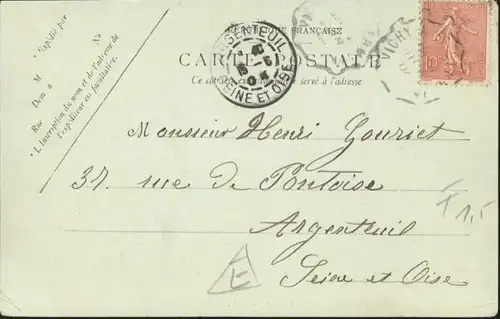 RÉPUBLIQUE FRANÇAISE
CARTE POSTALE
Ce côté est exclusivement réservé à l'adresse
* Expédié par
M
N°
Dem à
Rue
* L'inscription du nom et de l'adresse de
l'expéditeur est facultative.
ARGENTEUIL
SEINE ET OISE
VICHY
10c
Monsieur Henri Gouriet
37 rue de Pontoise
Argenteuil
Seine et Oise